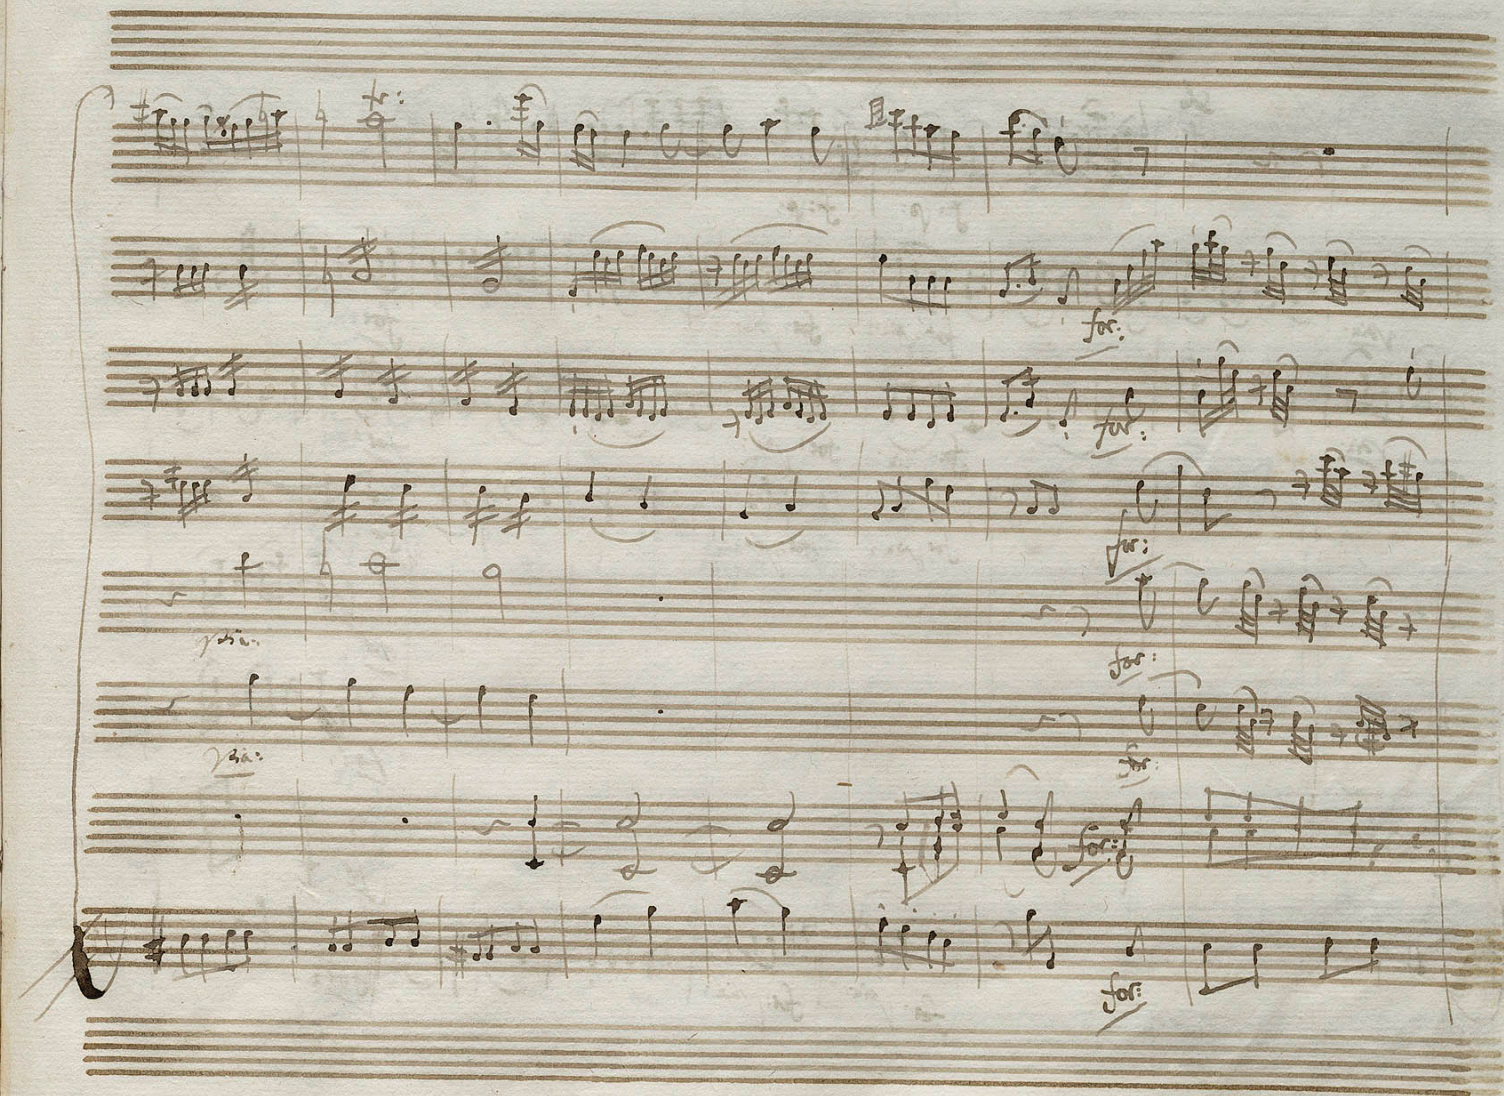 tr:
for:
for:
for:
pia:
for:
pia:
for:
for:
for: